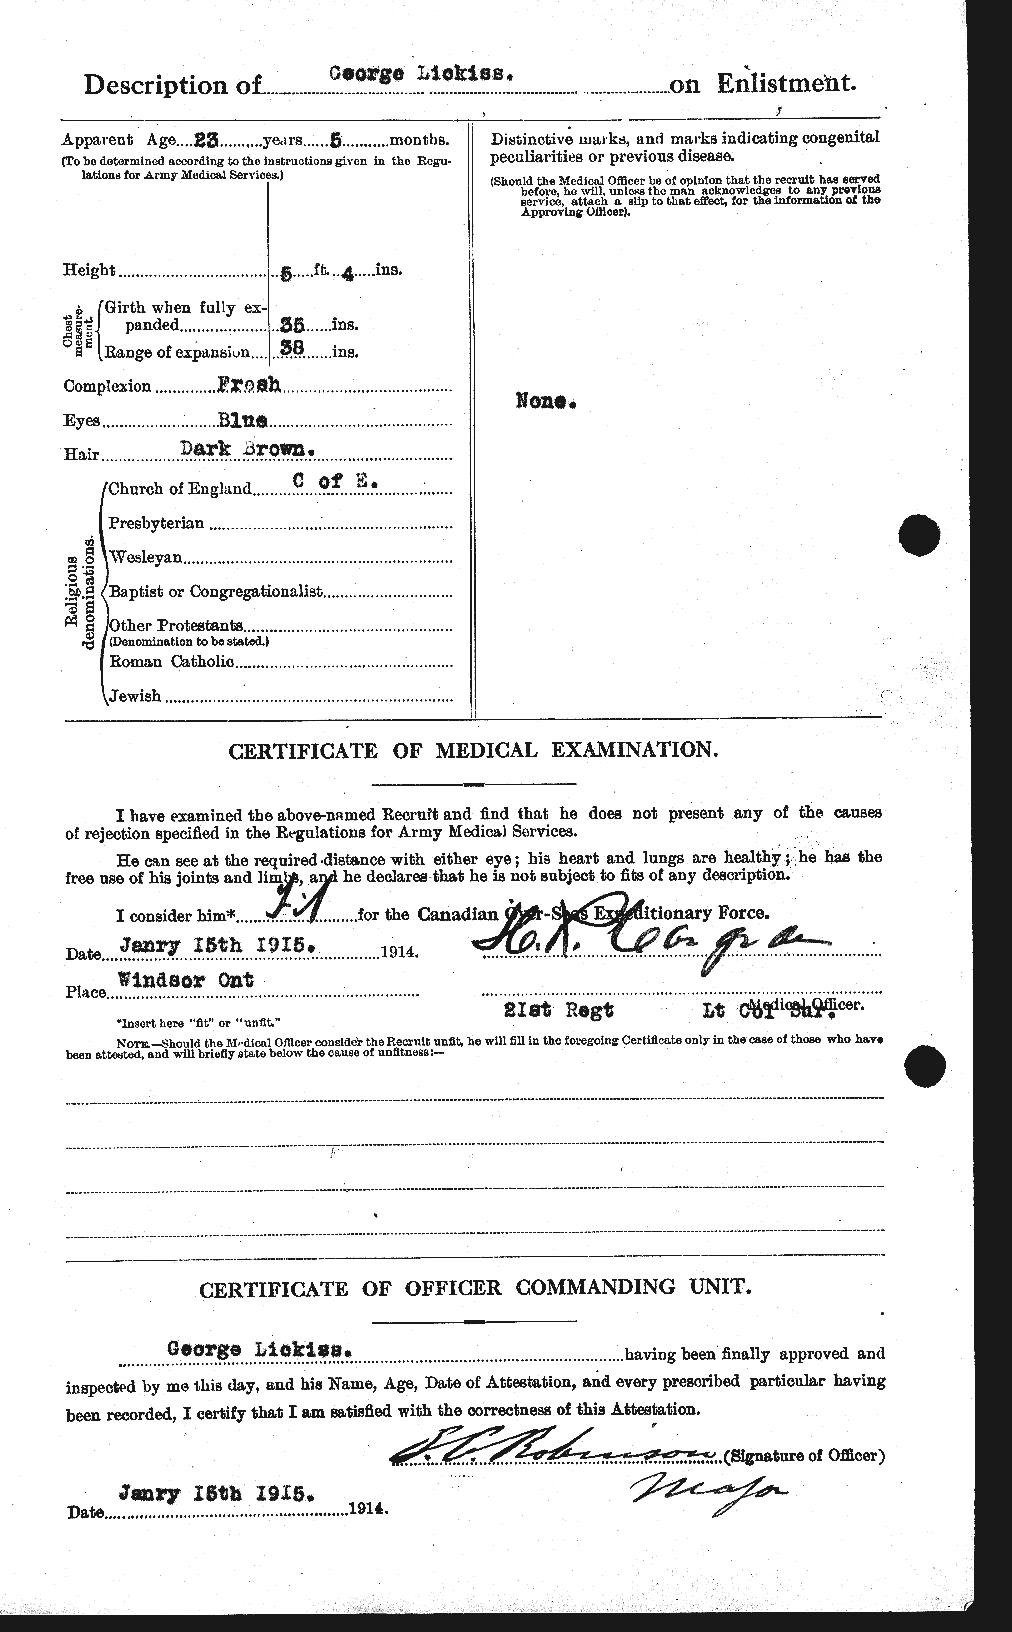 Description of George Lickiss. on Enlistment.
Apparent Age....23.........years.....5..........months.
(To be determined according to the instructions given in the Regu-
lations for Army Medical Services.)
Height 5 ft. 4 ins.
Chest measure-ment.
Girth when fully ex-
panded 35 ins.
Range of expansion 38 ins.
Complexion Fresh
Eyes Blue
Hair Dark Brown.
Religious denominations.
Church of England C of E.
Presbyterian
Wesleyan
Baptist or Congregationalist
Other Protestants
(Denomination to be stated.)
Roman Catholic
Jewish
Distinctive marks, and marks indicating congenital
peculiarities or previous disease.
(Should the Medical Officer be of opinion that the recruit has served
before, he will, unless the man acknowledges to any previous
service, attach a slip to that effect, for the information of the
Approving Officer).
None.
CERTIFICATE OF MEDICAL EXAMINATION.
I have examined the above-named Recruit and find that he does not present any of the causes
of rejection specified in the Regulations for Army Medical Services.
He can see at the required distance with either eye; his heart and lungs are healthy; he has the
free use of his joints and limbs, and he declares that he is not subject to fits of any description.
I consider him* Fit for the Canadian Over-Seas Expeditionary Force.
Date Janry 15th 1915. 1914.
Place Windsor Ont
21st Regt Lt Col Sur.
Medical Officer.
*Insert here "fit" or "unfit."
NOTE.—Should the Medical Officer consider the Recruit unfit, he will fill in the foregoing Certificate only in the case of those who have
been attested, and will briefly state below the cause of unfitness:—
CERTIFICATE OF OFFICER COMMANDING UNIT.
George Lickiss. having been finally approved and
inspected by me this day, and his Name, Age, Date of Attestation, and every prescribed particular having
been recorded, I certify that I am satisfied with the correctness of this Attestation.
Robinson (Signature of Officer)
Major
Date Janry 15th 1915. 1914.